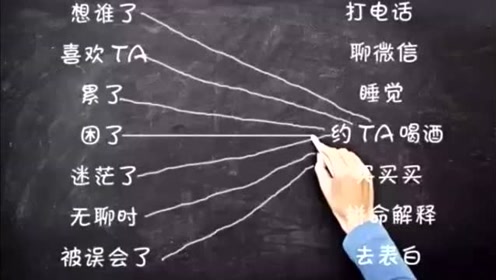 想谁了 打电话
喜欢TA 聊微信
累了 睡觉
困了 约TA喝酒
迷茫了 买买
无聊时 命解释
被误会了 去表白